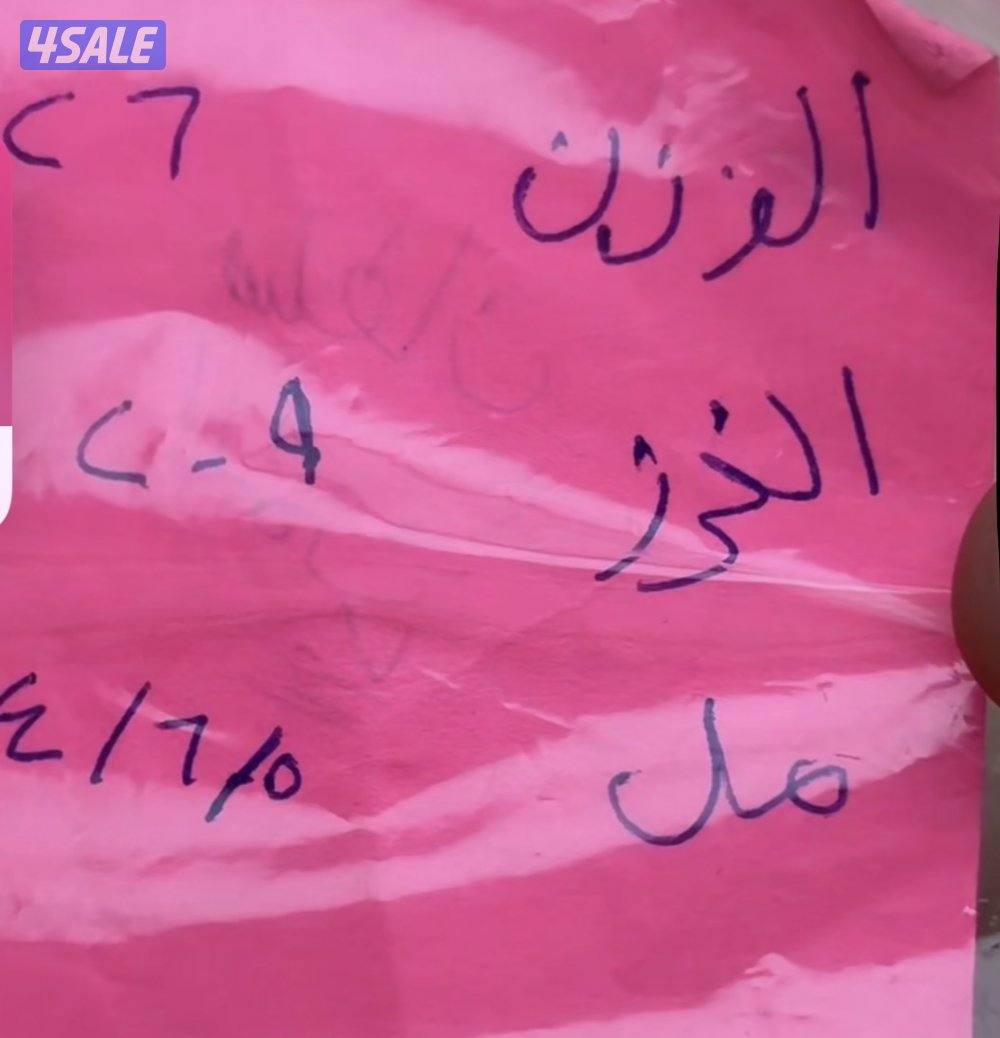 4SALE
الوزن ٢٦
الخرز ٢-٩
مل ٤/٦/٥